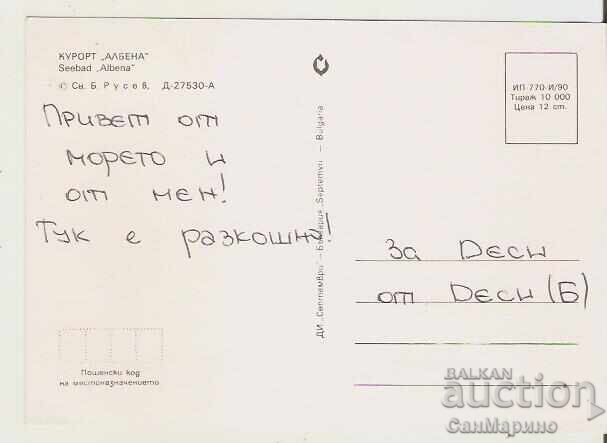 КУРОРТ „АЛБЕНА"
Seebad „Albena"
© Св. Б. Русев, Д-27530-А
Привет от
морето и
от мен!
Тук е разкошно!
ДИ „Септември" — България „Septemvri" — Bulgaria
ИП-770-И/90
Тираж 10 000
Цена 12 ст.
За Деси
от Деси (Б)
Пощенски код
на местоназначението
BALKAN
auction
СанМарино